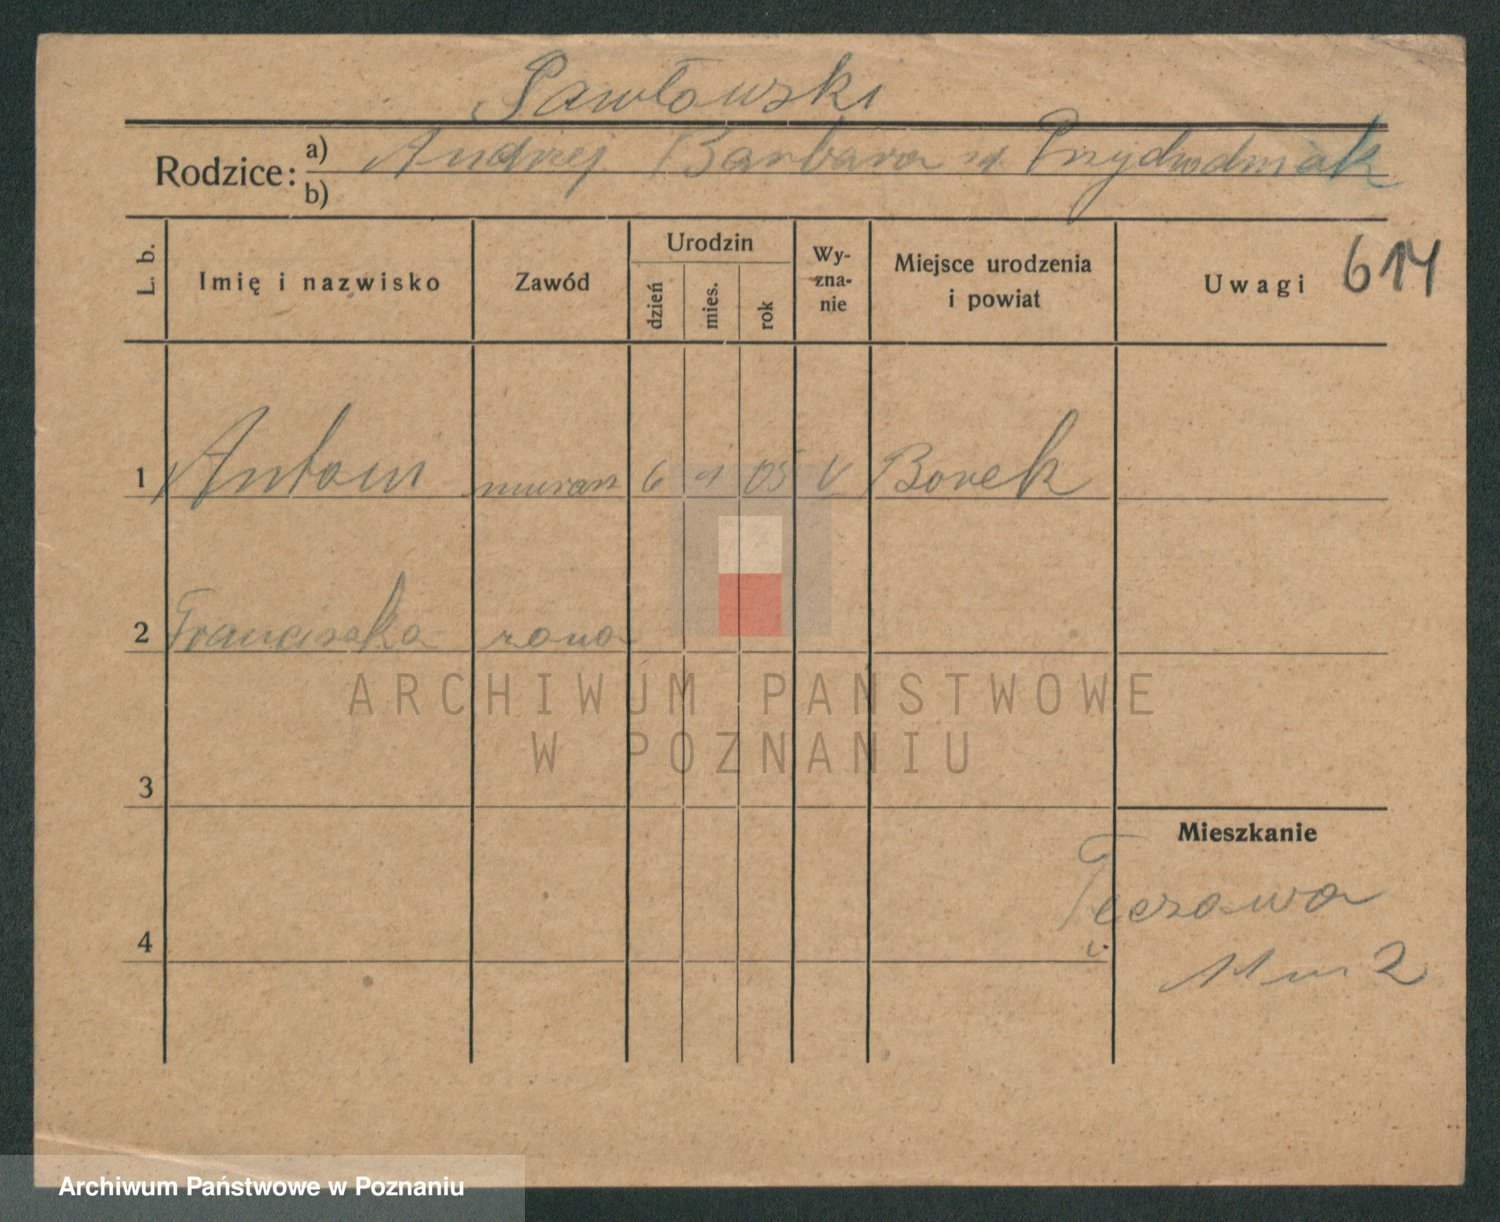 Pawłowski
Rodzice: a) b) Andrzej Barbara
L. b. Imię i nazwisko Zawód Urodzin dzień mies. rok Wy-zna-nie Miejsce urodzenia i powiat Uwagi 614
1 Antoni murarz 6 1 05 Borek
2 Franciszka
ARCHIWUM PAŃSTWOWE
W POZNANIU
3
Mieszkanie
Tęczowa
4
11 m 2
Archiwum Państwowe w Poznaniu